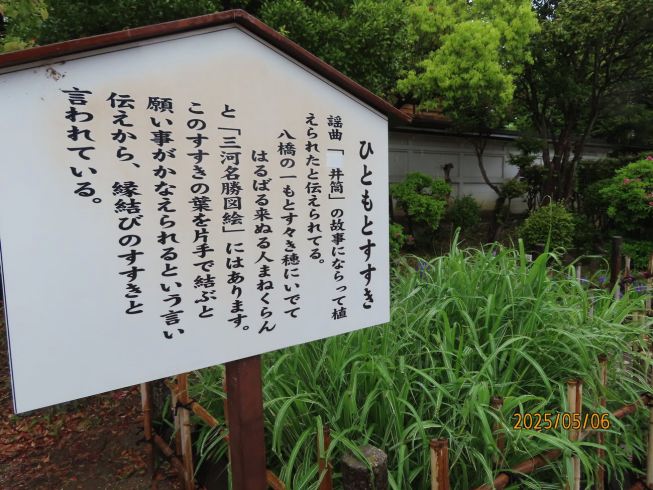 ひともとすすき
謡曲「井筒」の故事にならって植
えられたと伝えられてる。
八橋の一もとすゝき穂にいでて
はるばる来ぬる人まねくらん
と「三河名勝図絵」にはあります。
このすすきの葉を片手で結ぶと
願い事がかなえられるという言い
伝えから、縁結びのすすきと
言われている。
2025/05/06